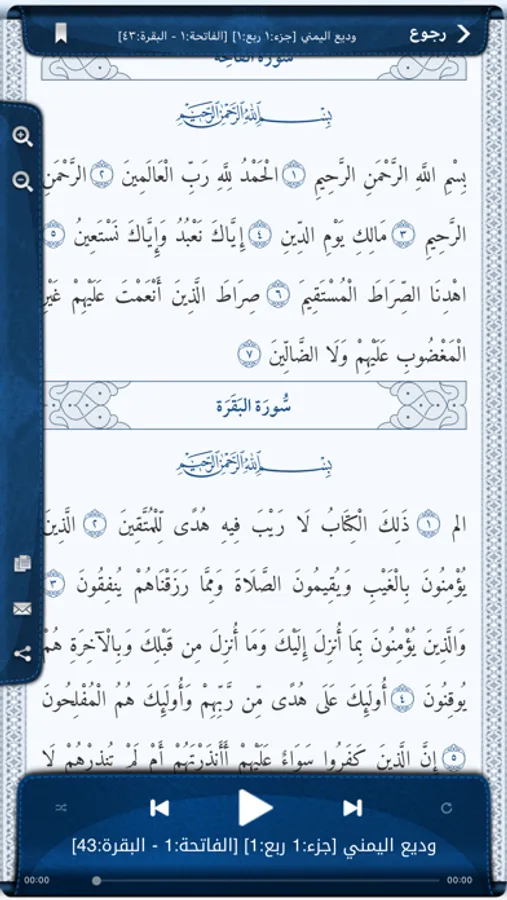 رجوع
وديع اليمني [جزء:١ ربع:١] [الفاتحة:١ - البقرة:٤٣]
سورة الفاتحة
بِسْمِ اللَّهِ الرَّحْمَنِ الرَّحِيمِ
بِسْمِ اللَّهِ الرَّحْمَنِ الرَّحِيمِ ١ الْحَمْدُ لِلَّهِ رَبِّ الْعَالَمِينَ ٢ الرَّحْمَنِ
الرَّحِيمِ ٣ مَالِكِ يَوْمِ الدِّينِ ٤ إِيَّاكَ نَعْبُدُ وَإِيَّاكَ نَسْتَعِينُ ٥
اهْدِنَا الصِّرَاطَ الْمُسْتَقِيمَ ٦ صِرَاطَ الَّذِينَ أَنْعَمْتَ عَلَيْهِمْ غَيْرِ
الْمَغْضُوبِ عَلَيْهِمْ وَلَا الضَّالِّينَ ٧
سُورَة البَقَرَة
بِسْمِ اللَّهِ الرَّحْمَنِ الرَّحِيمِ
الم ١ ذَلِكَ الْكِتَابُ لَا رَيْبَ فِيهِ هُدًى لِّلْمُتَّقِينَ ٢ الَّذِينَ
يُؤْمِنُونَ بِالْغَيْبِ وَيُقِيمُونَ الصَّلَاةَ وَمِمَّا رَزَقْنَاهُمْ يُنفِقُونَ ٣
وَالَّذِينَ يُؤْمِنُونَ بِمَا أُنزِلَ إِلَيْكَ وَمَا أُنزِلَ مِن قَبْلِكَ وَبِالْآخِرَةِ هُمْ
يُوقِنُونَ ٤ أُولَئِكَ عَلَى هُدًى مِّن رَّبِّهِمْ وَأُولَئِكَ هُمُ الْمُفْلِحُونَ
٥ إِنَّ الَّذِينَ كَفَرُوا سَوَاءٌ عَلَيْهِمْ أَأَنذَرْتَهُمْ أَمْ لَمْ تُنذِرْهُمْ لَا
وديع اليمني [جزء:1 ربع:1] [الفاتحة:1 - البقرة:43]
00:00
00:00